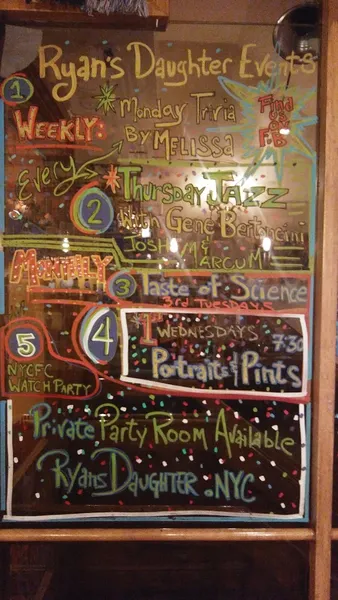 Ryan's Daughter Events
1
WEEKLY:
*Monday Trivia
BY MELISSA
Find
us on
F.B.
Every
*THURSDAY JAZZ
2
With Gene Bertoncini
JOSH MARCUM
MONTHLY
3 Taste of Science
3rd TUESDAYS
4
1st WEDNESDAYS 7:30
Portraits & Pints
5
NYCFC
WATCH PARTY
Private Party Room Available
RYANSDAUGHTER.NYC